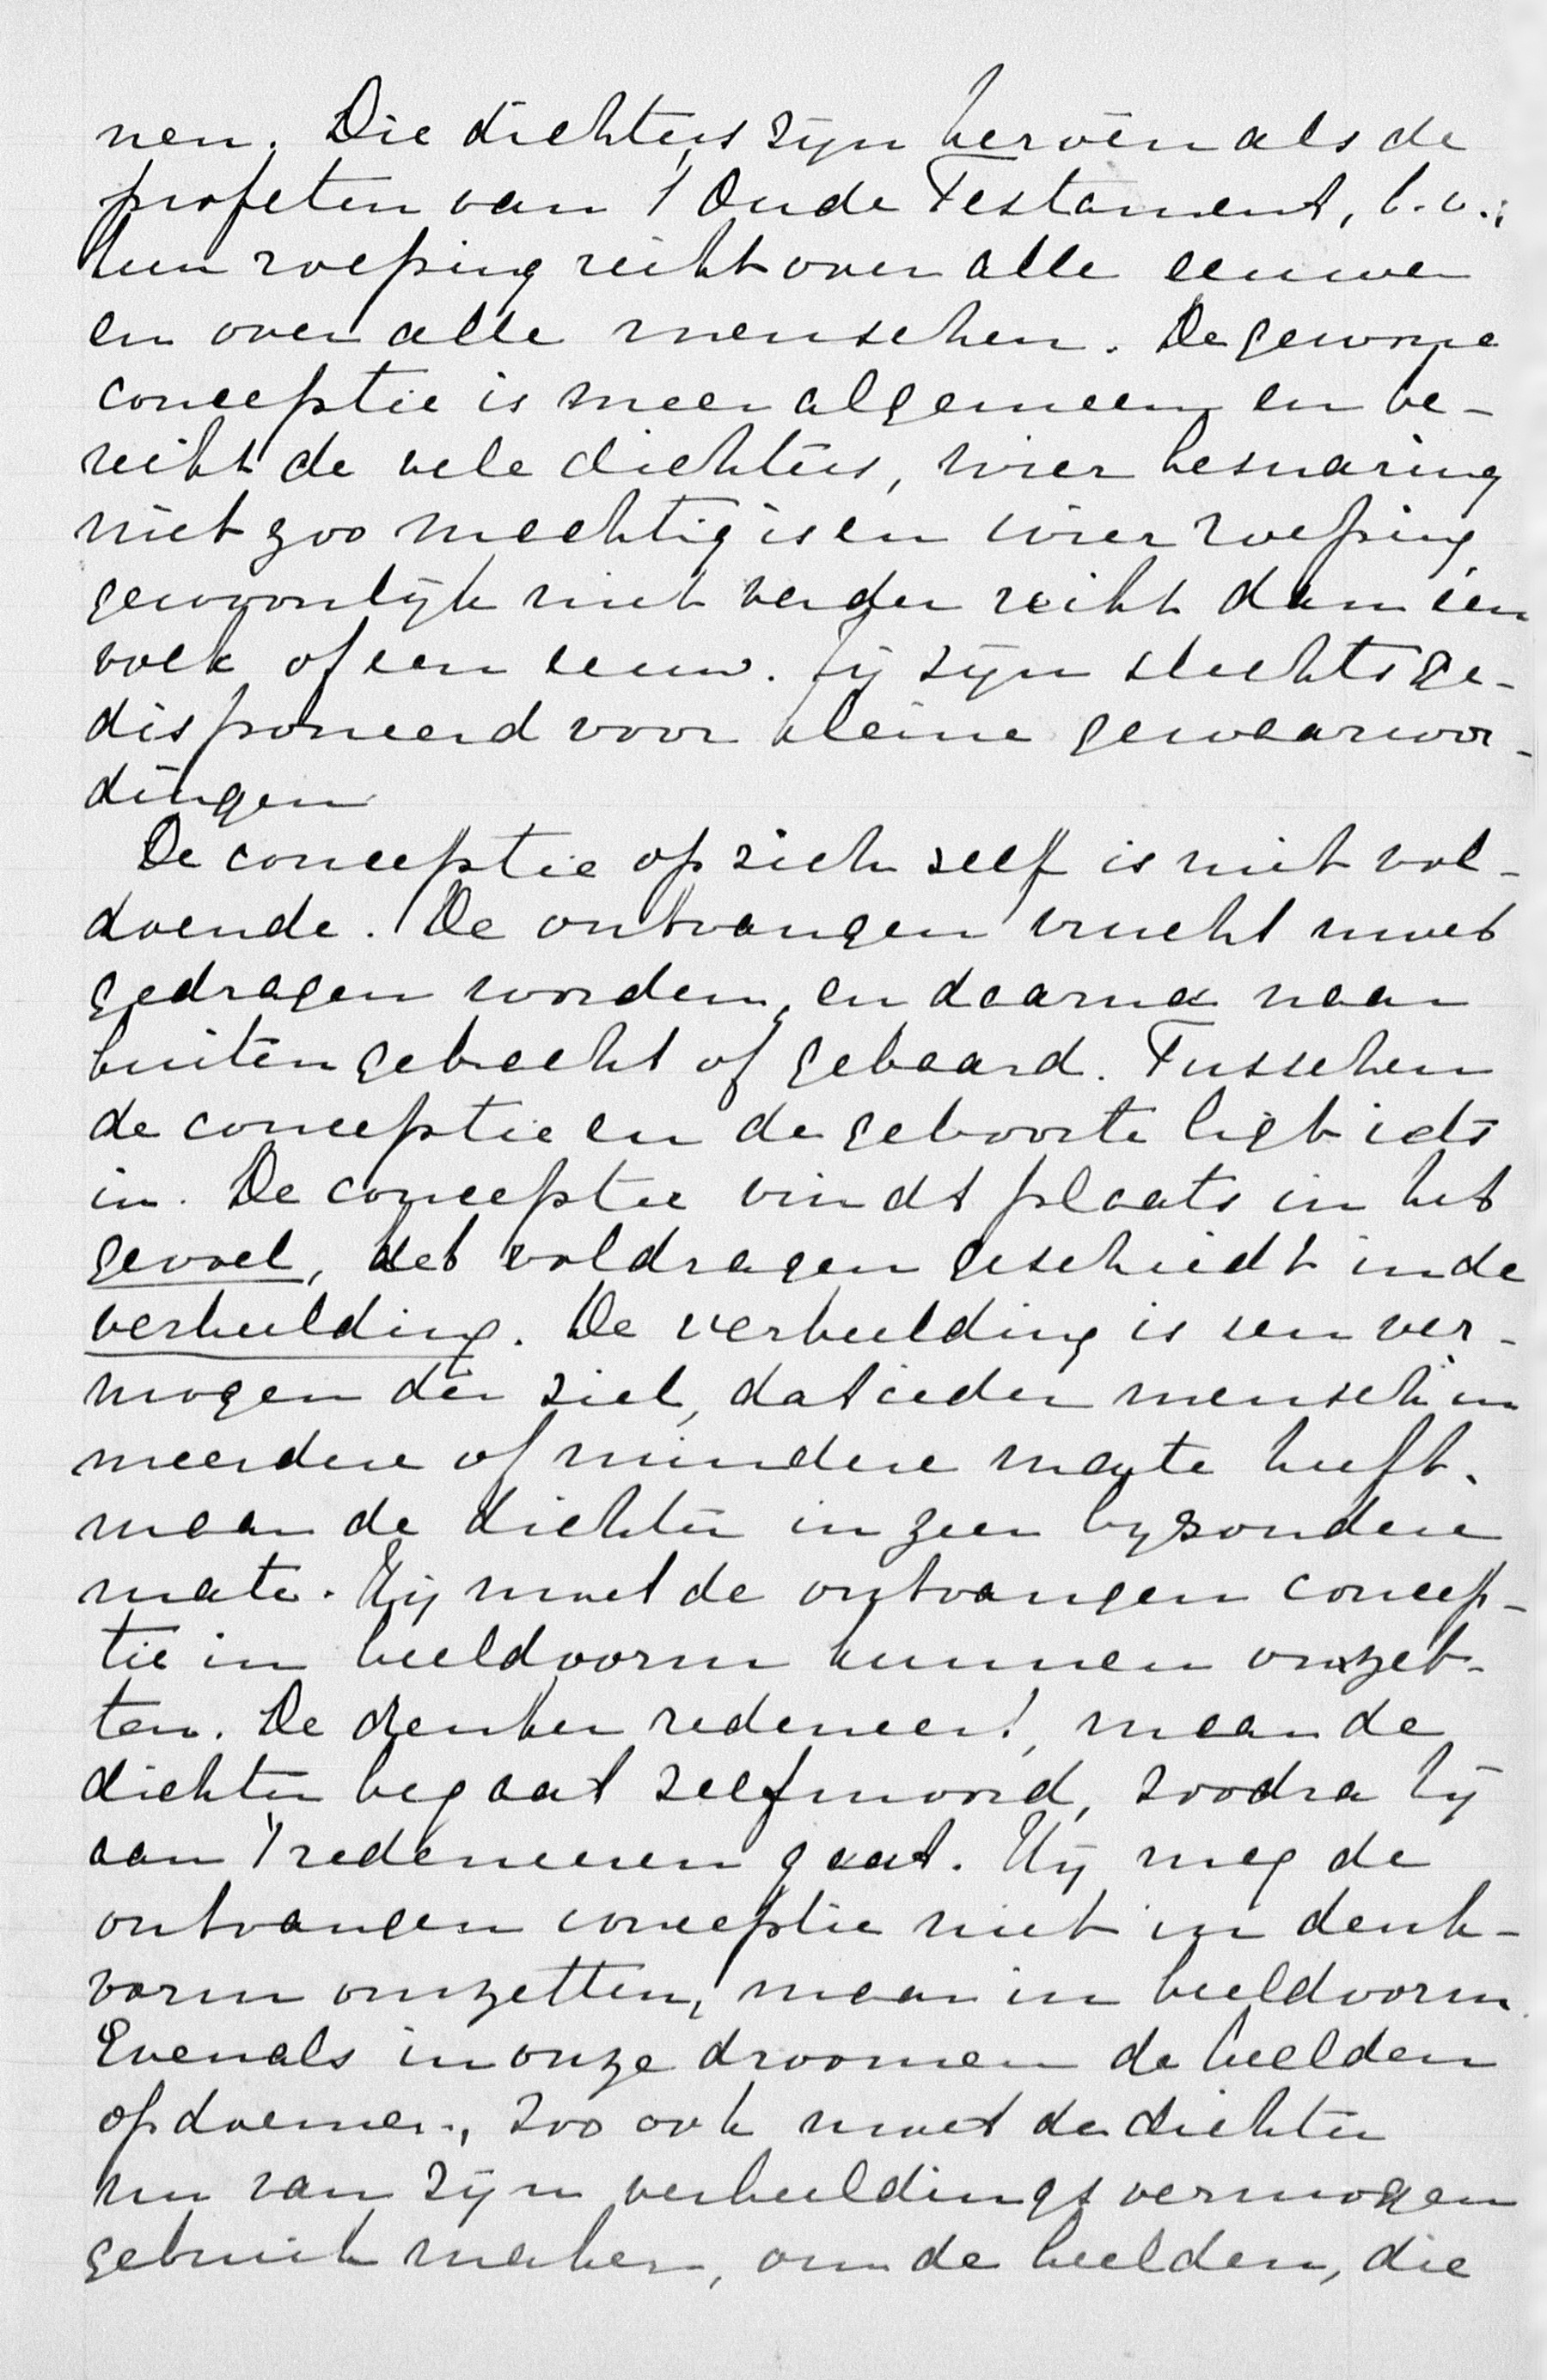 nen. Die dichters zijn heroën als de
profeten van 't Oude Testament, b.v.;
hun roeping reikt over alle eeuwen
en over alle menschen. De gewone
conceptie is meer algemeen en be-
reikt de vele dichters, wier besnaring
niet zoo machtig is en wier roeping
gewoonlijk niet verder reikt dan één
volk of een eeuw. Zij zijn slechts ge-
disponeerd voor kleine gewaarwor-
dingen
De conceptie op zich zelf is niet vol-
doende. De ontvangen vrucht moet
gedragen worden, en daarna naar
buiten gebracht of gebaard. Tusschen
de conceptie en de geboorte ligt iets
in. De conceptie vindt plaats in het
gevoel, het voldragen geschiedt in de
verbeelding. De verbeelding is een ver-
mogen der ziel, dat ieder mensch in
meerdere of mindere mate heeft,
maar de dichter in zeer bijzondere
mate. Hij moet de ontvangen concep-
tie in beeldvorm kunnen omzet-
ten. De denker redeneert, maar de
dichter begaat zelfmoord, zoodra hij
aan 't redeneeren gaat. Hij mag de
ontvangen conceptie niet in denk-
vorm omzetten, maar in beeldvorm.
Evenals in onze droomen de beelden
opdoemen, zoo ook moet de dichter
nu van zijn verbeeldingsvermogen
gebruik maken, om de beelden, die